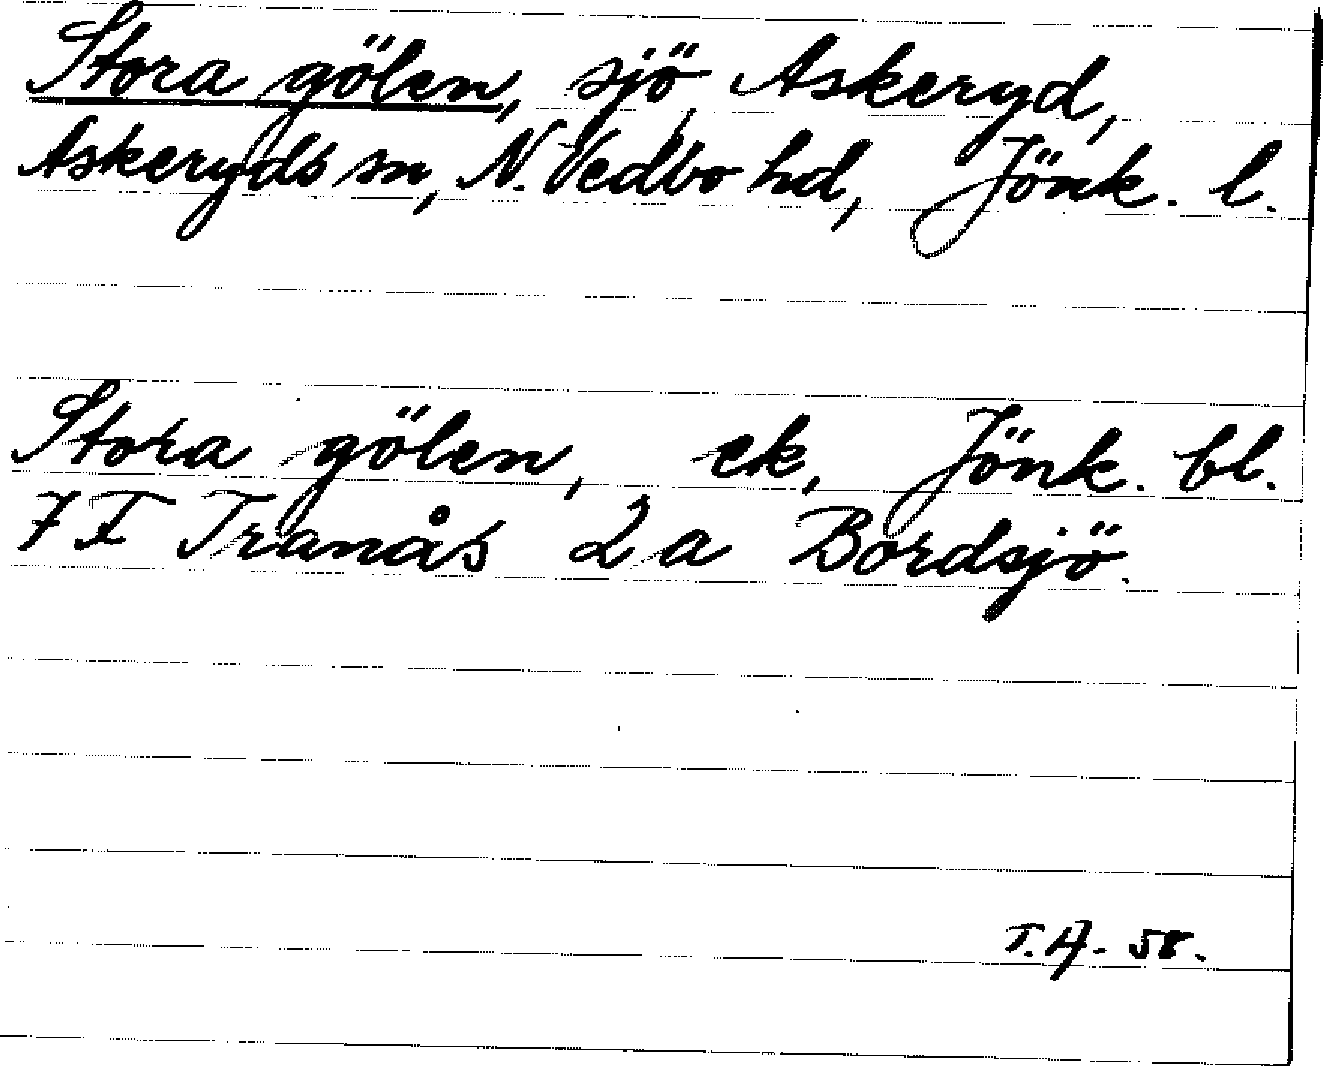 Stora gölen, sjö, Askeryd,
Askeryds sn, N. Vedbo hd, Jönk. l.
Stora gölen, ek, Jönk. bl.
7 F Tranås 2 a Bordsjö.
T.A. 58.